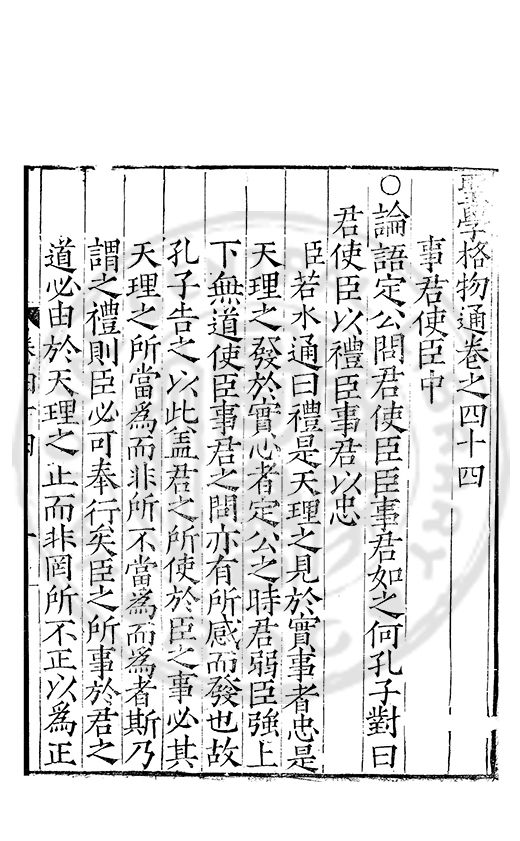 聖學格物通卷之四十四
事君使臣中
○論語定公問君使臣臣事君如之何孔子對曰
君使臣以禮臣事君以忠
臣若水通曰禮是天理之見於實事者忠是
天理之發於實心者定公之時君弱臣強上
下無道使臣事君之問亦有所感而發也故
孔子告之以此盖君之所使於臣之事必其
天理之所當為而非所不當為而為者斯乃
謂之禮則臣必可奉行矣臣之所事於君之
道必由於天理之正而非罔所不正以為正
卷四十四